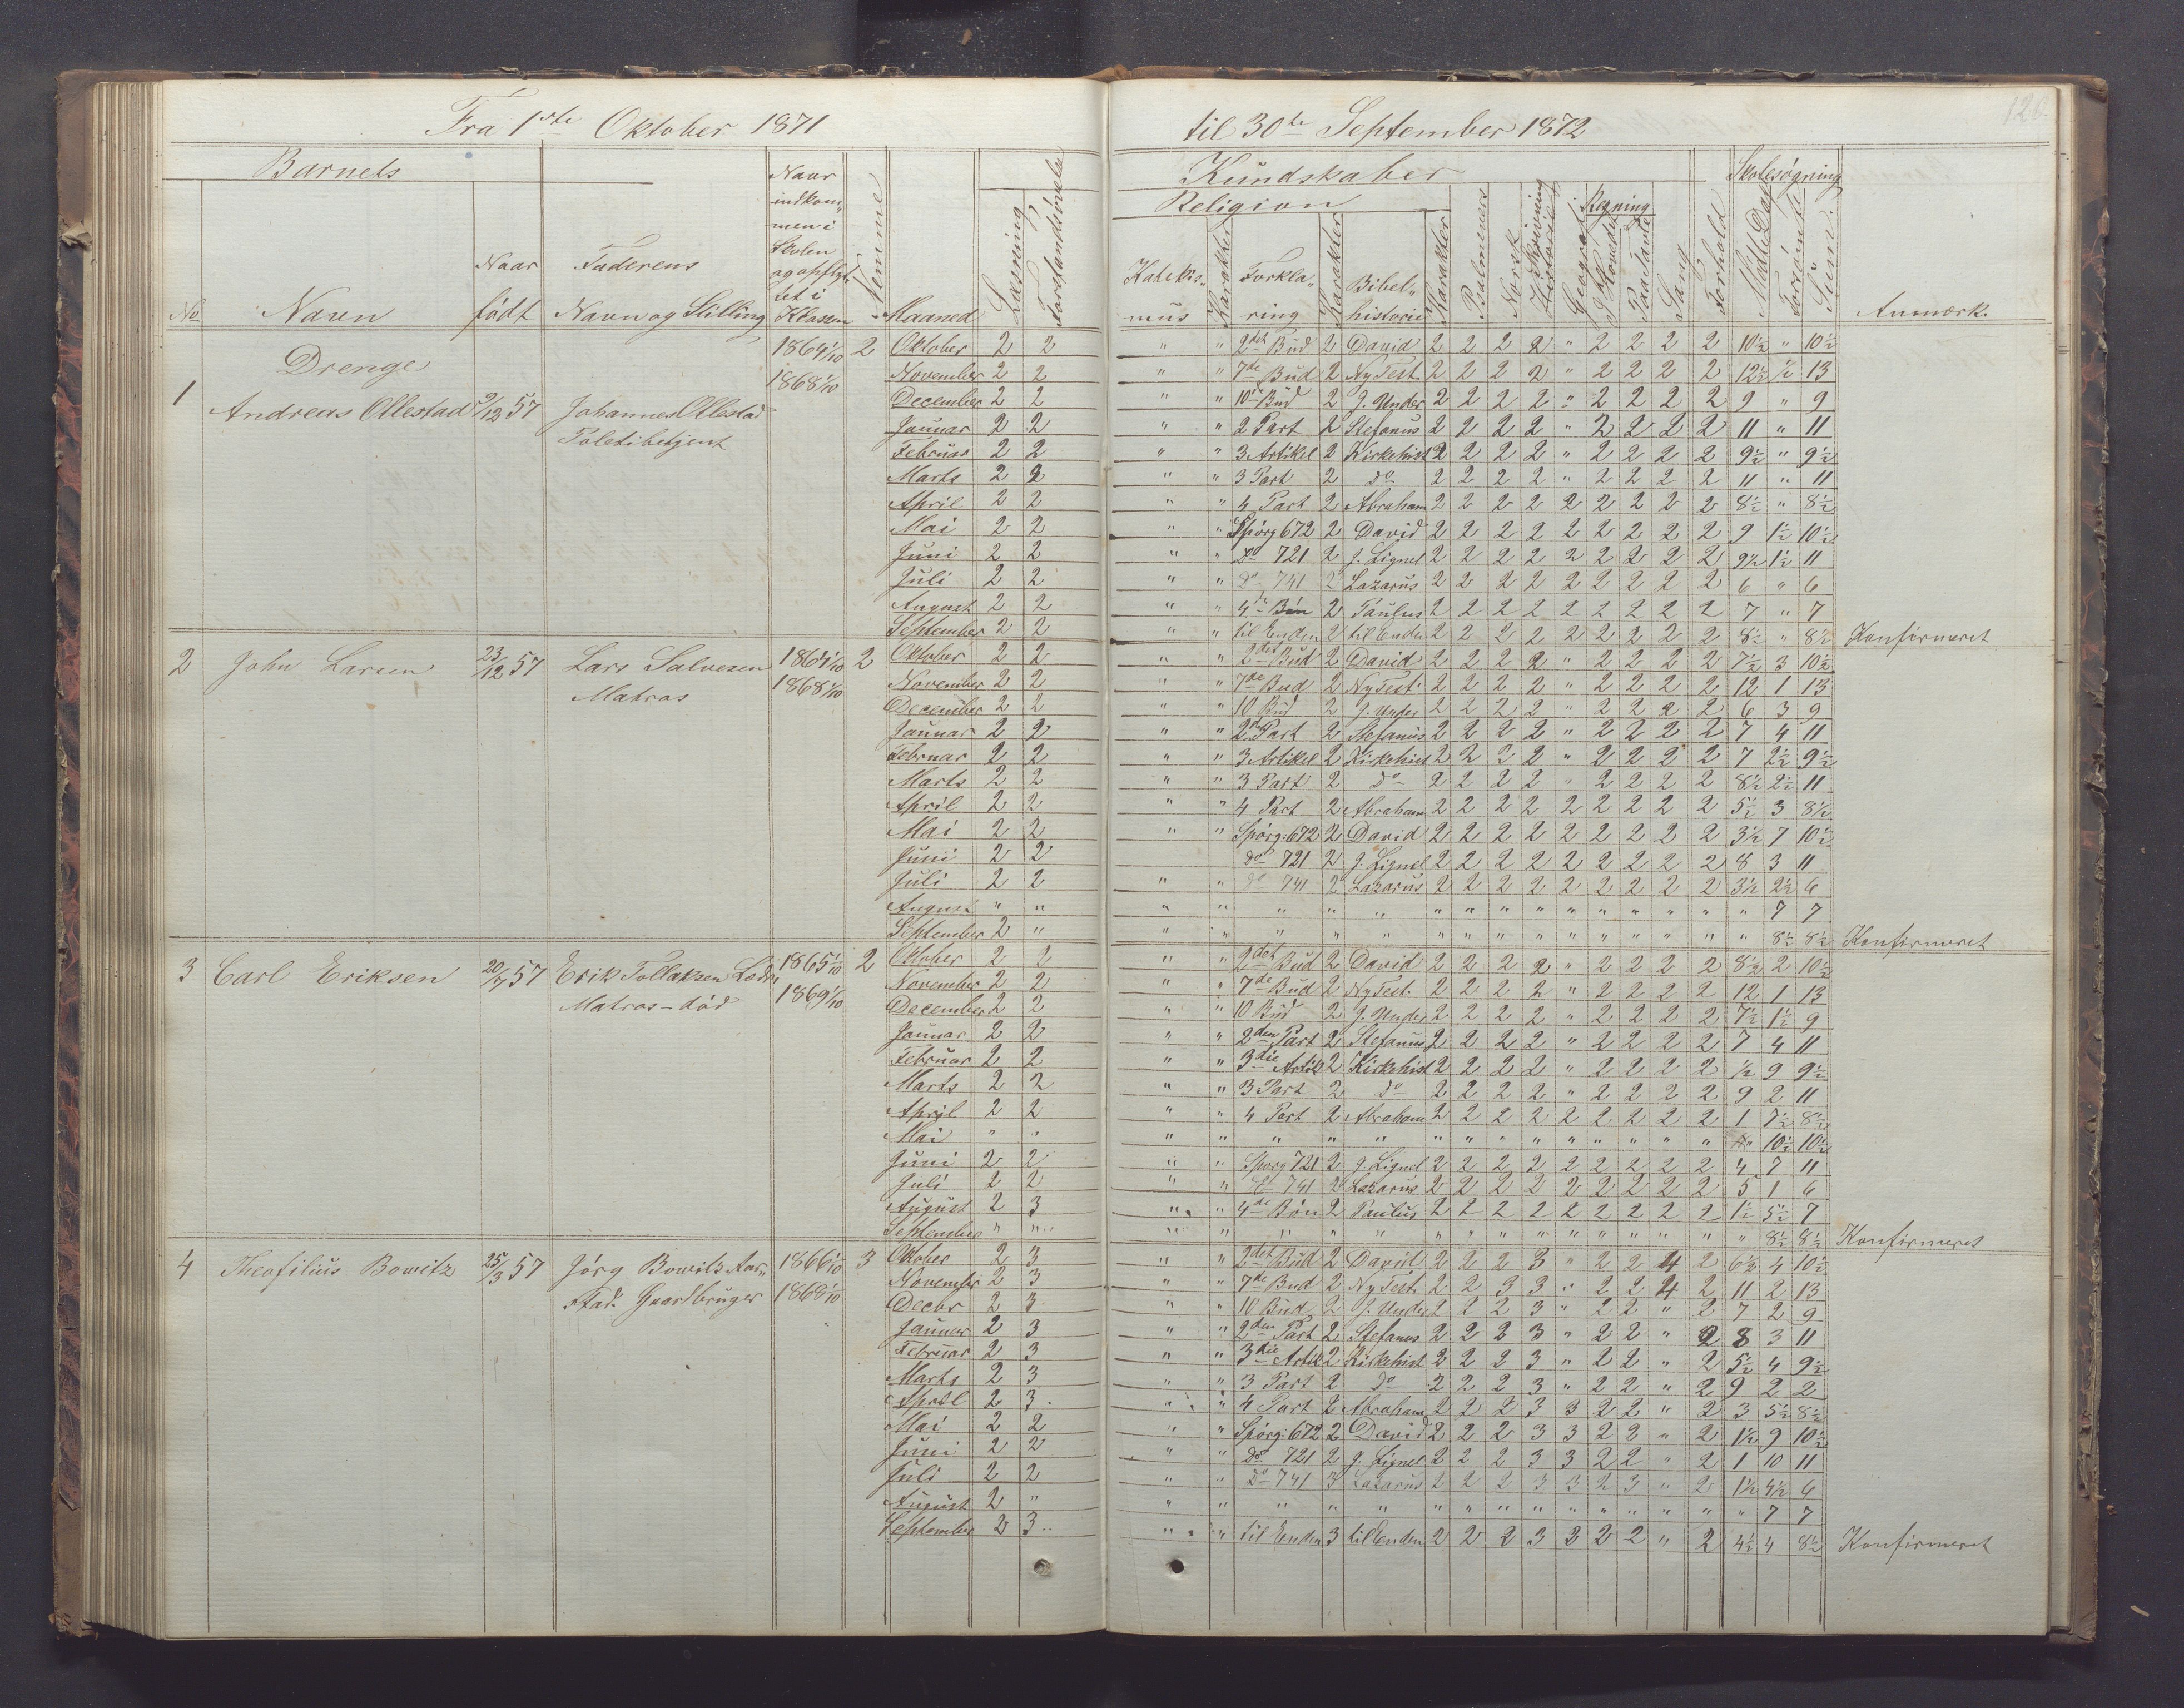 Fra 1ste Oktober 1871 til 30te September 1872
Barnets
No Navn
Naar født
Faderens Navn og Stilling
Naar indkommen i Skolen og opflyttet i Klassen
Nemme
Maaned
Læsning
Forstandsøvelse
Kundskaber
Religion
Katekismus Karakter Forklaring Karakter Bibelhistorie Karakter
Psalmevers Norsk Skrivning Historie Geografi
Regning
I Hovedet Paa Tavle
Sang Forhold
Skolesøgning
Mødte Dage Forsømte Sum
Anmærk.
Drenge
1 Andreas Ollestad 9/12 57 Johannes Ollestad Politibetjent 1864 1/10 1868 1/10 2
Oktober 2 2 " " 2det Bud 2 David 2 2 2 2 " 2 2 2 2 10½ " 10½
November 2 2 " " 7de Bud 2 Ny Test. 2 2 2 2 " 2 2 2 2 12½ ½ 13
December 2 2 " " 10de Bud 2 J. Under 2 2 2 2 " 2 2 2 2 9 " 9
Januar 2 2 " " 2 Part 2 Stefanus 2 2 2 2 " 2 2 2 2 11 " 11
Februar 2 2 " " 3 Artikel 2 Kirkehist 2 2 2 2 " 2 2 2 2 9½ " 9½
Marts 2 2 " " 3 Part 2 do 2 2 2 2 " 2 2 2 2 11 " 11
April 2 2 " " 4 Part 2 Abraham 2 2 2 2 2 2 2 2 2 8½ " 8½
Mai 2 2 " " Spørg 672 2 David 2 2 2 2 2 2 2 2 2 9 1½ 10½
Juni 2 2 " " Do 721 2 J. Lignel 2 2 2 2 2 2 2 2 2 9½ 1½ 11
Juli 2 2 " " do 741 2 Lazarus 2 2 2 2 2 2 2 2 2 6 " 6
August 2 2 " " 4de Bøn 2 Paulus 2 2 2 2 2 2 2 2 2 7 " 7
September 2 2 " " til Enden 2 til Enden 2 2 2 2 2 2 2 2 2 8½ " 8½ Konfirmeret
2 John Larsen 23/12 57 Lars Salvesen Matros 1864 1/10 1868 1/10 2
Oktober 2 2 " " 2det Bud 2 David 2 2 2 2 " 2 2 2 2 7½ 3 10½
November 2 2 " " 7de Bud 2 Ny Test. 2 2 2 2 " 2 2 2 2 12 1 13
December 2 2 " " 10 Bud 2 J. Under 2 2 2 2 " 2 2 2 2 6 3 9
Januar 2 2 " " 2den Part 2 Stefanus 2 2 2 2 " 2 2 2 2 7 4 11
Februar 2 2 " " 3 Artikel 2 Kirkehist 2 2 2 2 " 2 2 2 2 7 2½ 9½
Marts 2 2 " " 3 Part 2 do 2 2 2 2 " 2 2 2 2 8½ 2½ 11
April 2 2 " " 4 Part 2 Abraham 2 2 2 2 2 2 2 2 2 5½ 3 8½
Mai 2 2 " " Spørg: 672 2 David 2 2 2 2 2 2 2 2 2 3½ 7 10½
Juni 2 2 do 721 2 J. Lignel 2 2 2 2 2 2 2 2 2 8 3 11
Juli 2 2 " " do 741 2 Lazarus 2 2 2 2 2 2 2 2 2 3½ 2½ 6
August " " " " " " " " " " " " " " " " " 7 7
September 2 " " " " " " " " " " " " " " " " 8½ 8½ Konfirmeret
3 Carl Eriksen 20/7 57 Erik Tollaksen Matros - død 1865 1/10 1869 1/10 2
Oktober 2 2 " " 2det Bud 2 David 2 2 2 2 " 2 2 2 2 8½ 2 10½
November 2 2 " " 7de Bud 2 Ny Test. 2 2 2 2 " 2 2 2 2 12 1 13
December 2 2 " " 10 Bud 2 J. Under 2 2 2 2 " 2 2 2 2 7½ 1½ 9
Januar 2 2 " " 2den Part 2 Stefanus 2 2 2 2 " 2 2 2 2 7 4 11
Februar 2 2 " " 3die Artik 2 Kirkehist 2 2 2 2 " 2 2 2 2 ½ 9 9½
Marts 2 2 " " 3 Part 2 do 2 2 2 2 " 2 2 2 2 9 2 11
April 2 2 " " 4 Part 2 Abraham 2 2 2 2 2 2 2 2 2 1 7½ 8½
Mai " " " " " " " " " " " " " " " " " 10½ 10½
Juni 2 2 " " Spørg 721 2 J. Lignel 2 2 2 2 2 2 2 2 2 4 7 11
Juli 2 2 " " do 741 2 Lazarus 2 2 2 2 2 2 2 2 2 5 1 6
August 2 3 " " 4de Bøn 2 Paulus 2 2 2 2 2 2 2 2 2 1½ 5½ 7
September " " " " " " " " " " " " " " " " " 8½ 8½ Konfirmeret
4 Theofilius Bowitz 25/3 57 Jørg Bowitz Aarstad. Gaardbruger 1866 1/10 1868 1/10 3
Oktober 2 3 " " 2det Bud 2 David 2 2 2 3 " 2 2 4 2 6½ 4 10½
November 2 3 " " 7de Bud 2 Ny Test. 2 2 3 3 " 2 2 4 2 11 2 13
Decbr 2 3 " " 10 Bud 2 J. Under 2 2 2 3 " 2 2 " 2 7 2 9
Januar 2 3 " " 2den Part 2 Stefanus 2 2 2 3 " 2 2 " 2 8 3 11
Februar 2 3 " " 3die Artik 2 Kirkehist 2 2 2 3 " 2 2 " 2 5½ 4 9½
Marts 2 3 " " 3 Part 2 do 2 2 2 3 " 2 2 " 2 9 2 2
April 2 3 " " 4 Part 2 Abraham 2 2 2 3 3 2 2 " 2 3 5½ 8½
Mai 2 2 " " Spørg: 672 2 David 2 2 2 3 3 2 2 " 2 1½ 9 10½
Juni 2 2 " " do 721 2 J. Lignel 2 2 2 3 3 2 2 " 2 1 10 11
Juli 2 2 " " Do 741 3 Lazarus 2 2 2 3 3 2 3 " 2 1½ 4½ 6
August 2 " " " " " " " " " " " " " " " " 7 7
September 2 3 " " til Enden 3 til Enden 2 2 2 3 3 2 2 " 2 4½ 4 8½ Konfirmeret